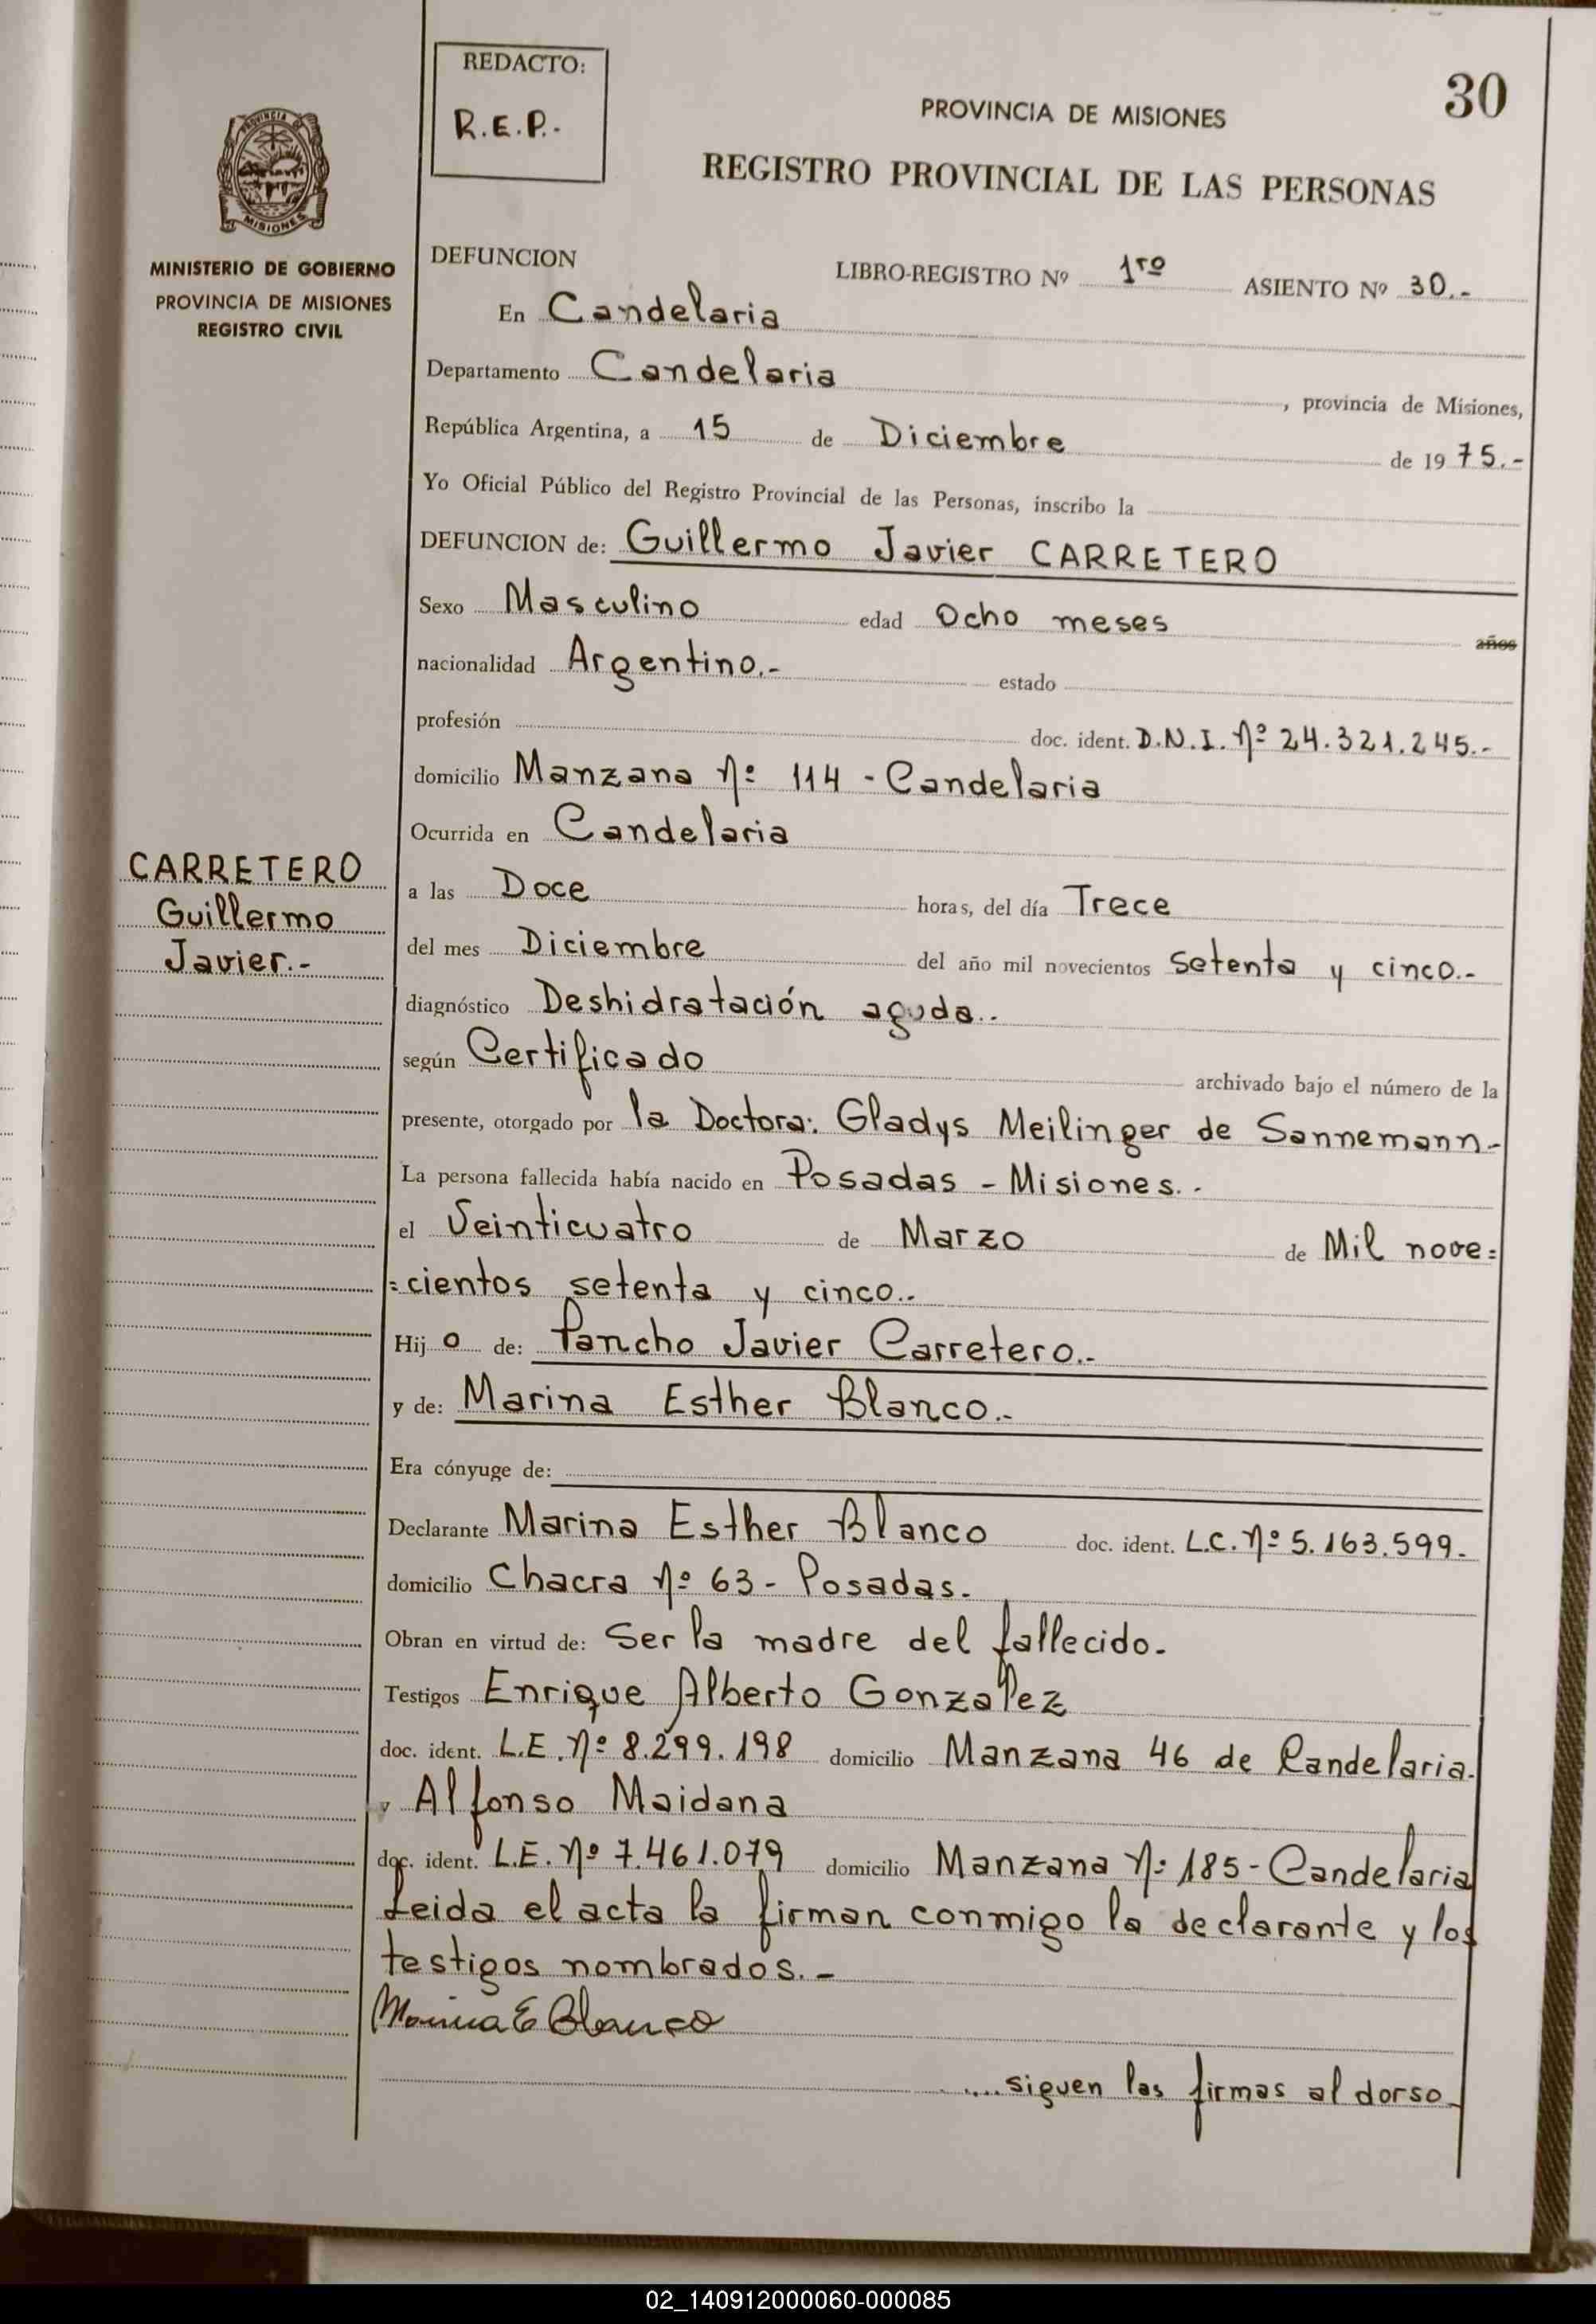 REDACTO:
R.E.P.-
30
PROVINCIA DE MISIONES
REGISTRO PROVINCIAL DE LAS PERSONAS
PROVINCIA DE
MISIONES
MINISTERIO DE GOBIERNO
PROVINCIA DE MISIONES
REGISTRO CIVIL
DEFUNCION LIBRO-REGISTRO Nº 1ro ASIENTO Nº 30.-
En Candelaria
Departamento Candelaria , provincia de Misiones,
República Argentina, a 15 de Diciembre de 1975.-
Yo Oficial Público del Registro Provincial de las Personas, inscribo la
DEFUNCION de: Guillermo Javier CARRETERO
Sexo Masculino edad Ocho meses años
nacionalidad Argentino.- estado
profesión doc. ident. D.N.I. Nº 24.321.245.-
domicilio Manzana Nº 114 - Candelaria
Ocurrida en Candelaria
CARRETERO
Guillermo
Javier.-
a las Doce horas, del día Trece
del mes Diciembre del año mil novecientos setenta y cinco.-
diagnóstico Deshidratación aguda.-
según Certificado archivado bajo el número de la
presente, otorgado por la Doctora: Gladys Meilinger de Sannemann-
La persona fallecida había nacido en Posadas - Misiones.-
el Veinticuatro de Marzo de Mil nove=
=cientos setenta y cinco.-
Hijo de: Pancho Javier Carretero.-
y de: Marina Esther Blanco.-
Era cónyuge de:
Declarante Marina Esther Blanco doc. ident. L.C. Nº 5.163.599.-
domicilio Chacra Nº 63 - Posadas.-
Obran en virtud de: Ser la madre del fallecido.-
Testigos Enrique Alberto Gonzalez
doc. ident. L.E. Nº 8.299.198 domicilio Manzana 46 de Candelaria.
y Alfonso Maidana
doc. ident. L.E. Nº 7.461.079 domicilio Manzana Nº 185 - Candelaria
Leida el acta la firman conmigo la declarante y los
testigos nombrados.-
Marina E Blanco
.... siguen las firmas al dorso.
02_140912000060-000085